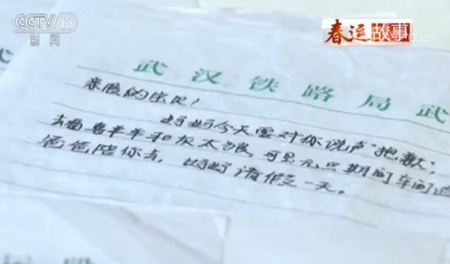 CCTV 13
新闻
春运故事
武汉铁路局武
亲爱的佳妃!
妈妈今天要对你说声"抱歉",
喜羊羊和灰太狼,可是元旦期间车间
爸爸陪你去,妈妈请假一天。